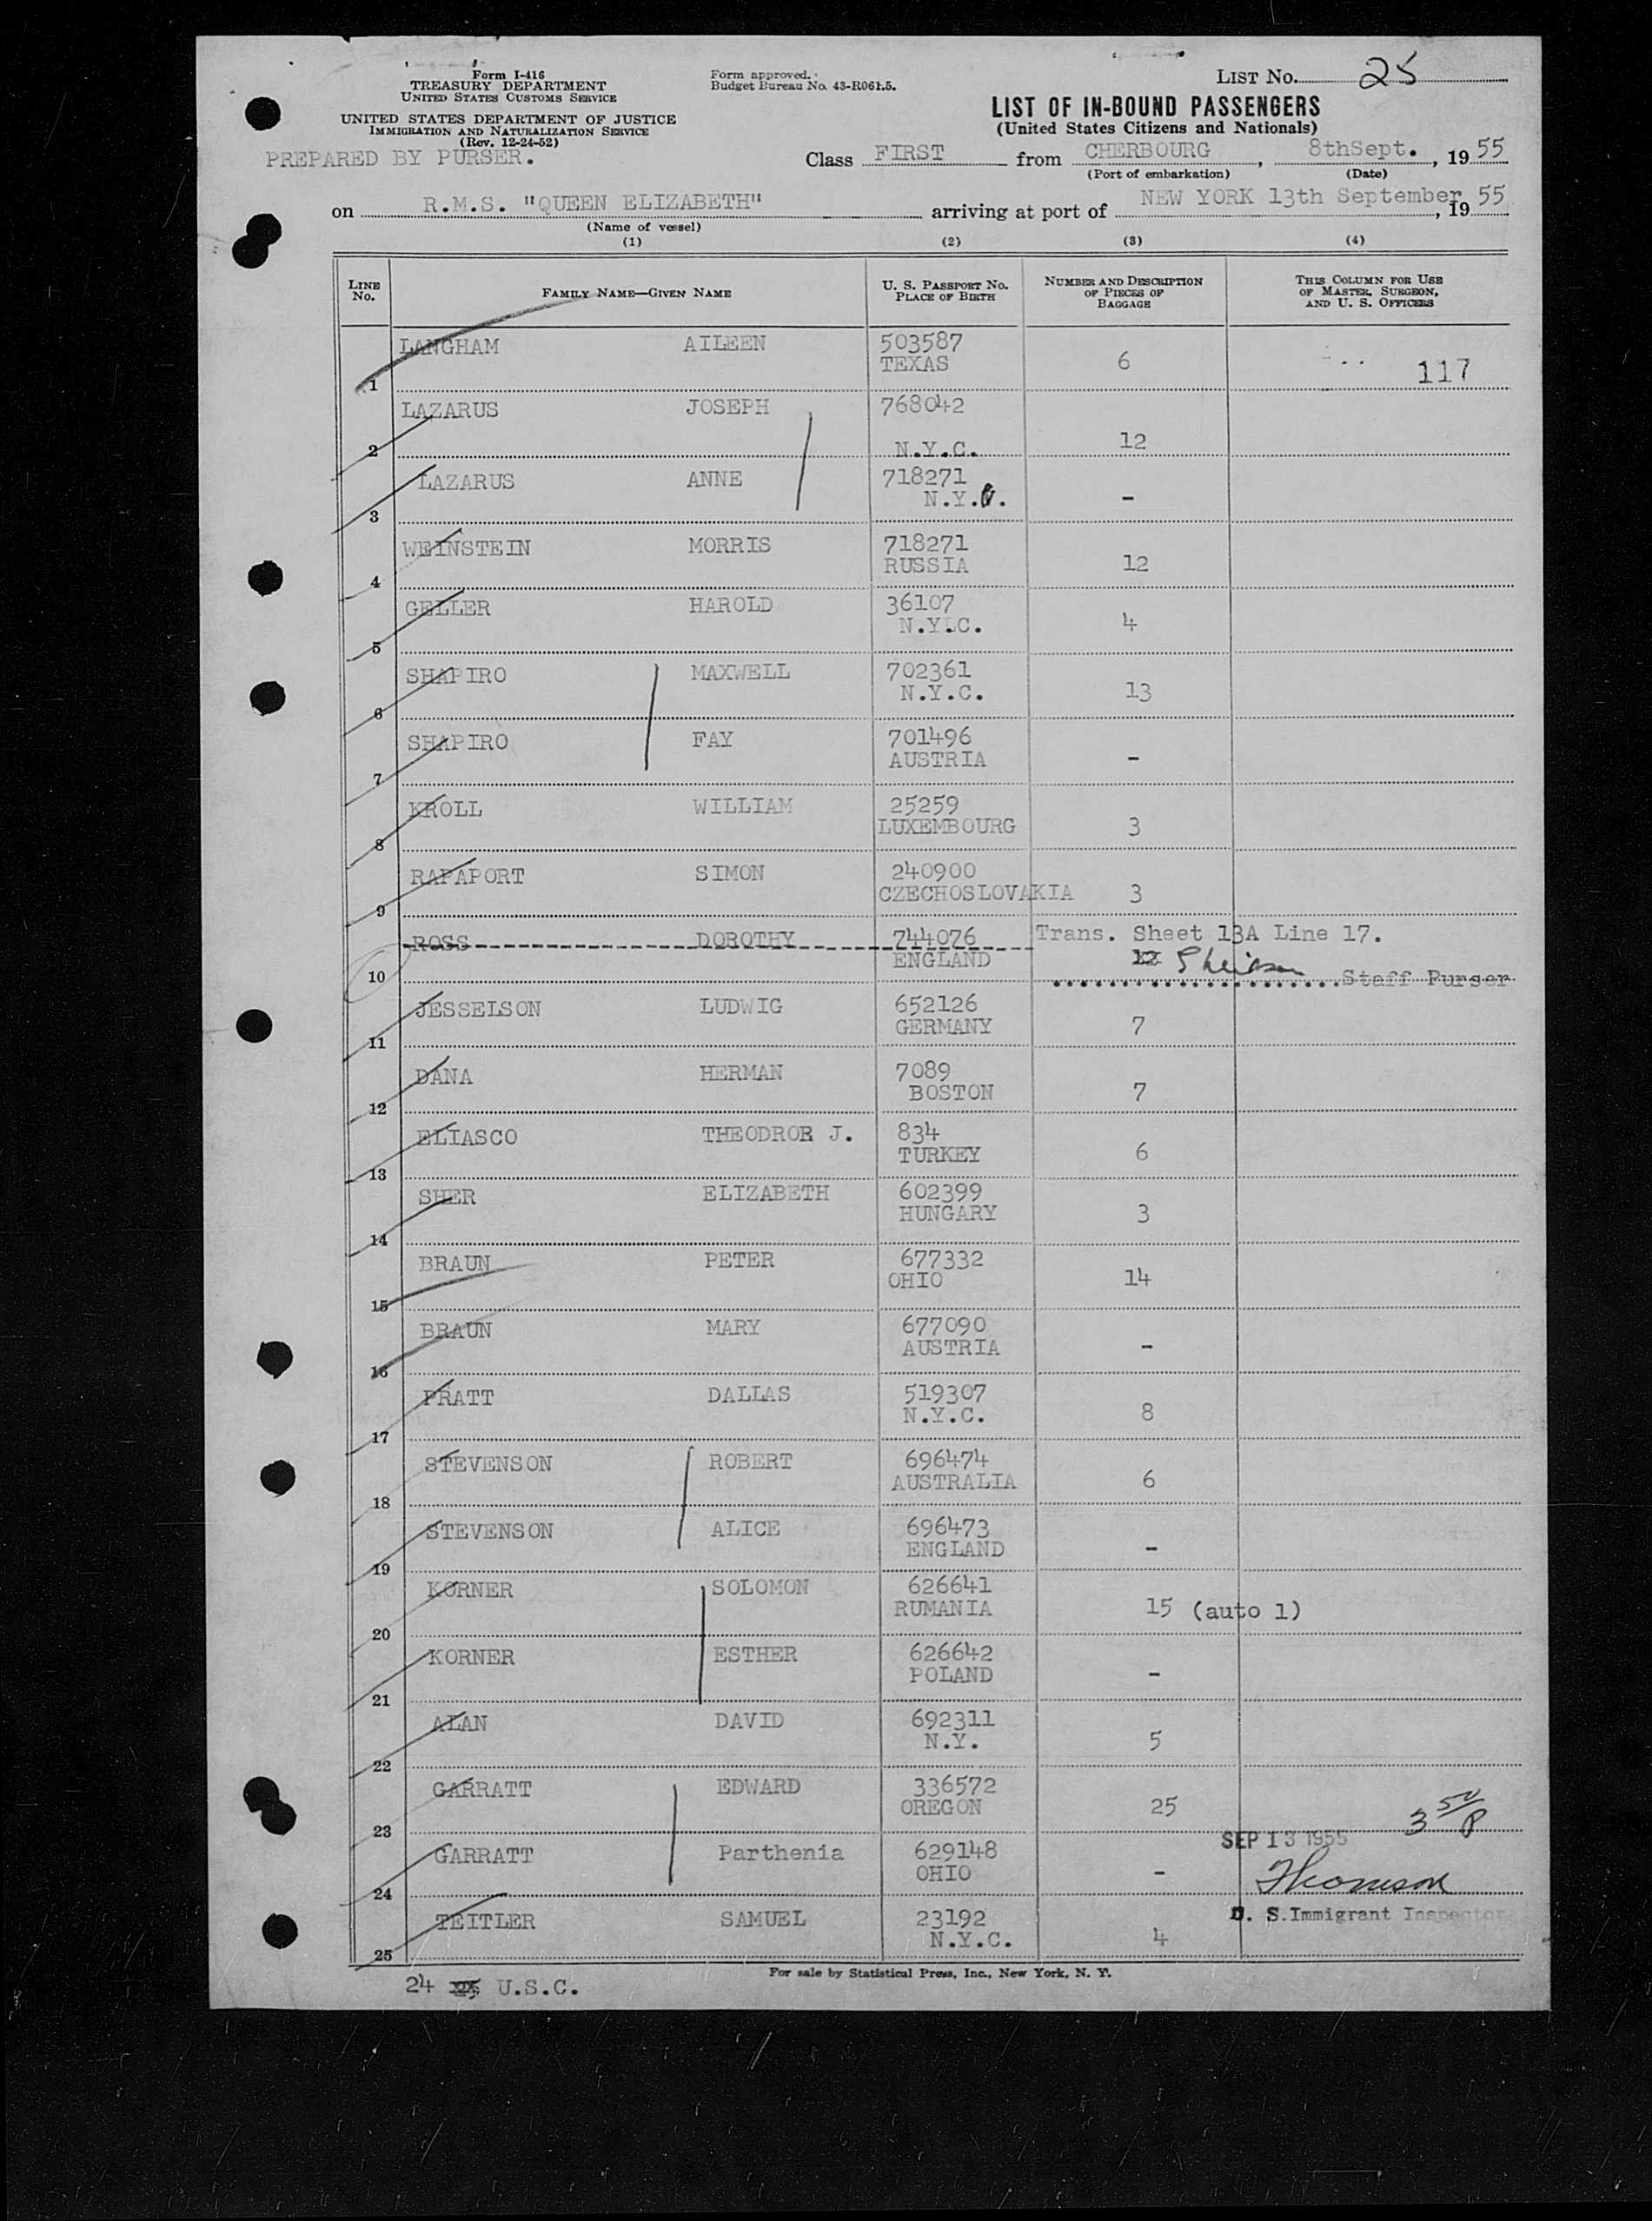 Form I-416
TREASURY DEPARTMENT
UNITED STATES CUSTOMS SERVICE
UNITED STATES DEPARTMENT OF JUSTICE
IMMIGRATION AND NATURALIZATION SERVICE
(Rev. 12-24-52)
PREPARED BY PURSER.
Form approved.
Budget Bureau No. 43-R061.5.
LIST No. 25
LIST OF IN-BOUND PASSENGERS
(United States Citizens and Nationals)
Class FIRST from CHERBOURG, 8thSept., 19 55
(Port of embarkation) (Date)
on R.M.S. "QUEEN ELIZABETH" arriving at port of NEW YORK 13th September, 19 55
(Name of vessel)
(1) (2) (3) (4)
LINE No. FAMILY NAME—GIVEN NAME U. S. PASSPORT No. PLACE OF BIRTH NUMBER AND DESCRIPTION OF PIECES OF BAGGAGE THIS COLUMN FOR USE OF MASTER, SURGEON, AND U. S. OFFICERS
1 LANGHAM AILEEN 503587 TEXAS 6 117
2 LAZARUS JOSEPH 768042 N.Y.C. 12
3 LAZARUS ANNE 718271 N.Y.C. -
4 WEINSTEIN MORRIS 718271 RUSSIA 12
5 GELLER HAROLD 36107 N.Y.C. 4
6 SHAPIRO MAXWELL 702361 N.Y.C. 13
7 SHAPIRO FAY 701496 AUSTRIA -
8 KROLL WILLIAM 25259 LUXEMBOURG 3
9 RAPAPORT SIMON 240900 CZECHOSLOVAKIA 3
10 ROSS DOROTHY 744076 ENGLAND Trans. Sheet 13A Line 17.
Staff Purser
11 JESSELSON LUDWIG 652126 GERMANY 7
12 DANA HERMAN 7089 BOSTON 7
13 ELIASCO THEODROR J. 834 TURKEY 6
14 SHER ELIZABETH 602399 HUNGARY 3
15 BRAUN PETER 677332 OHIO 14
16 BRAUN MARY 677090 AUSTRIA -
17 PRATT DALLAS 519307 N.Y.C. 8
18 STEVENSON ROBERT 696474 AUSTRALIA 6
19 STEVENSON ALICE 696473 ENGLAND -
20 KORNER SOLOMON 626641 RUMANIA 15 (auto 1)
21 KORNER ESTHER 626642 POLAND -
22 ALAN DAVID 692311 N.Y. 5
23 GARRATT EDWARD 336572 OREGON 25 3 50 P
SEP 13 1955
24 GARRATT Parthenia 629148 OHIO - Thomson
25 TEITLER SAMUEL 23192 N.Y.C. 4 U. S. Immigrant Inspector
For sale by Statistical Press, Inc., New York, N. Y.
24 U.S.C.